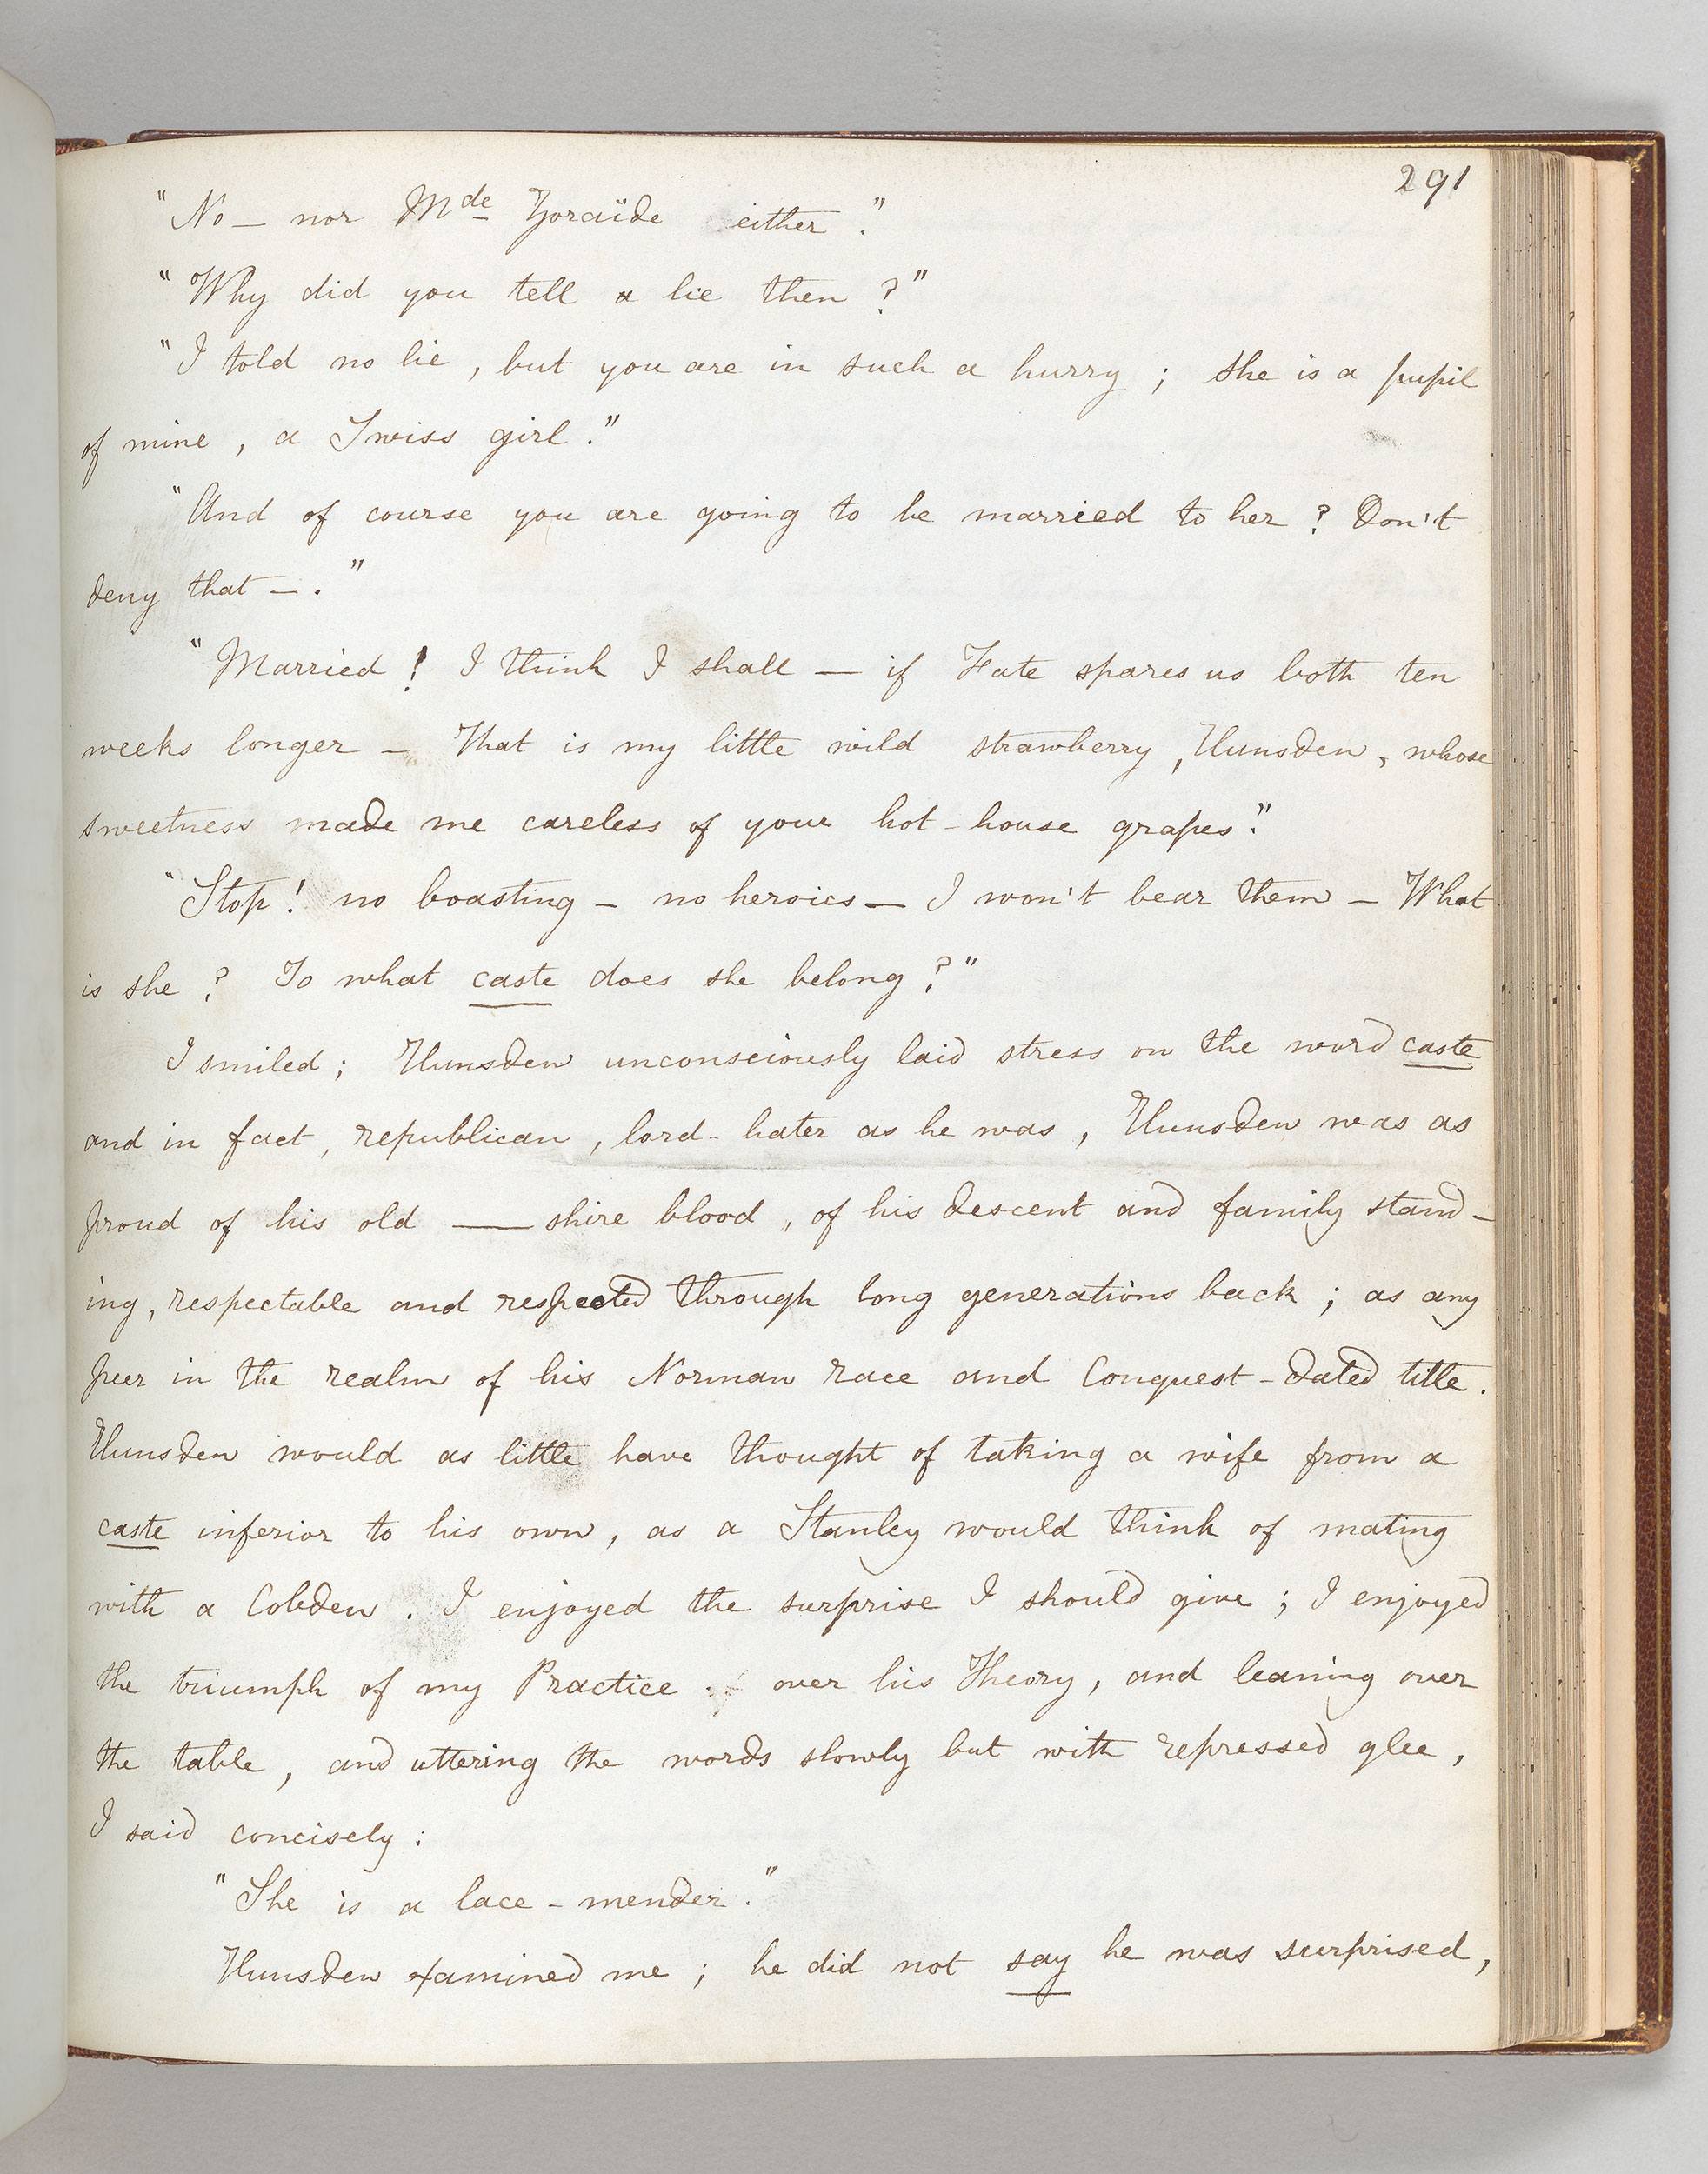 291
"No — nor Mde Zoraïde either."
"Why did you tell a lie then?"
"I told no lie, but you are in such a hurry; she is a pupil
of mine, a Swiss girl."
"And of course you are going to be married to her? Don't
deny that —."
"Married! I think I shall — if Fate spares us both ten
weeks longer — That is my little wild strawberry, Hunsden, whose
sweetness made me careless of your hot-house grapes."
"Stop! no boasting — no heroics — I won't bear them — What
is she? To what caste does she belong?"
I smiled; Hunsden unconsciously laid stress on the word caste
and in fact, republican, lord-hater as he was, Hunsden was as
proud of his old ——shire blood, of his descent and family stand-
ing, respectable and respected through long generations back; as any
peer in the realm of his Norman race and Conquest-dated title.
Hunsden would as little have thought of taking a wife from a
caste inferior to his own, as a Stanley would think of mating
with a Cobden. I enjoyed the surprise I should give; I enjoyed
the triumph of my Practice over his Theory, and leaning over
the table, and uttering the words slowly but with repressed glee,
I said concisely:
"She is a lace-mender."
Hunsden examined me; he did not say he was surprised,